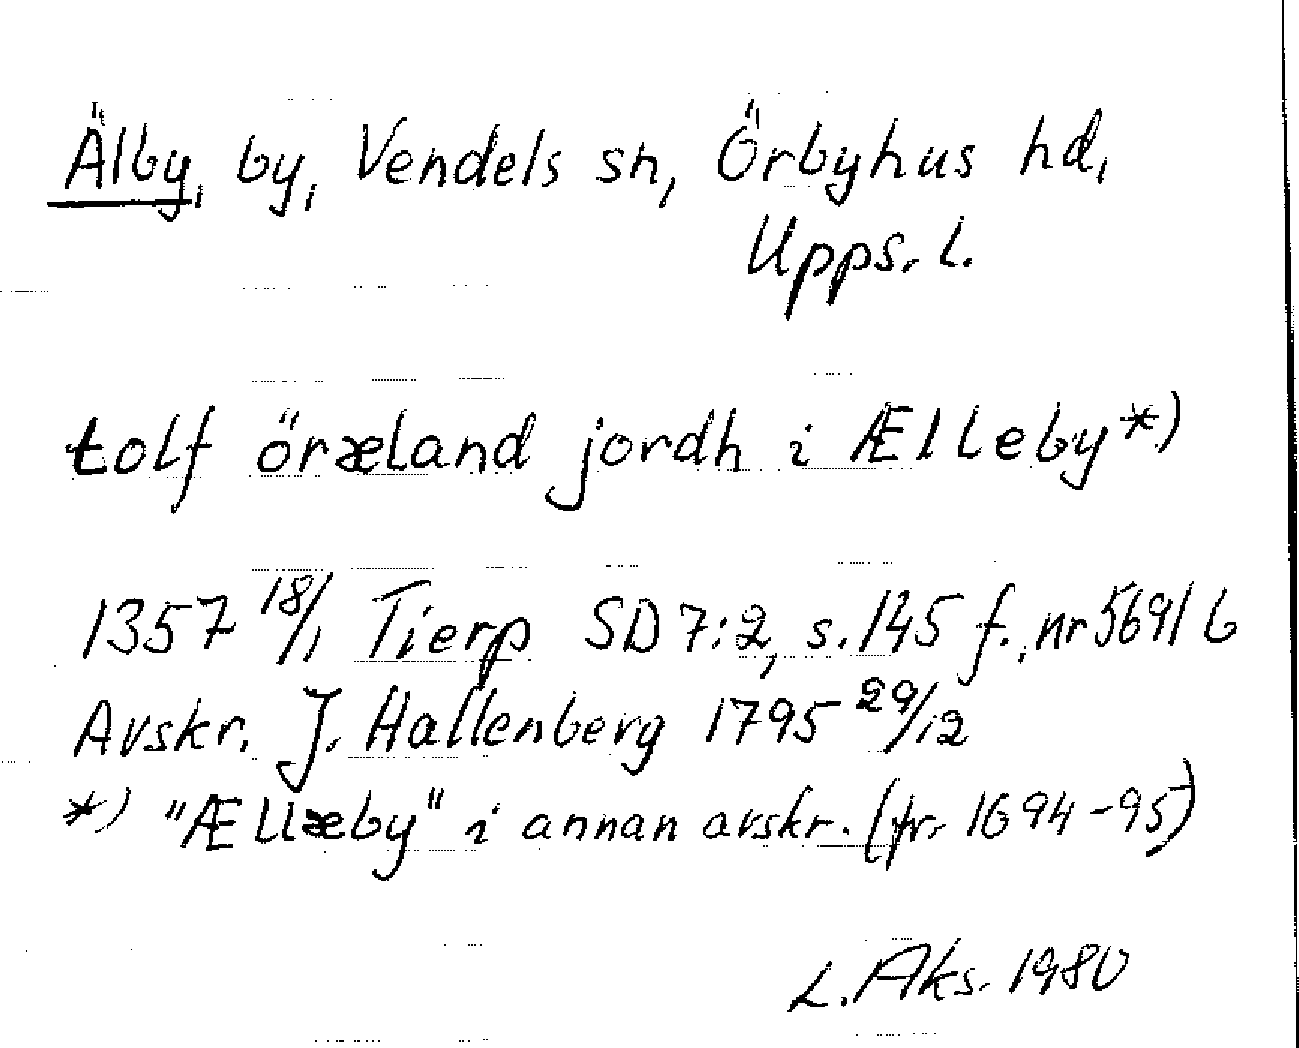 Älby, by, Vendels sn, Örbyhus hd,
Upps. l.
tolf öræland jordh i Ælleby*)
1357 18/1 Tierp SD 7:2, s. 145 f., nr 5691 b
Avskr. J. Hallenberg 1795 29/12
*) "Ællæby" i annan avskr. (fr. 1694-95)
L. Aks. 1980